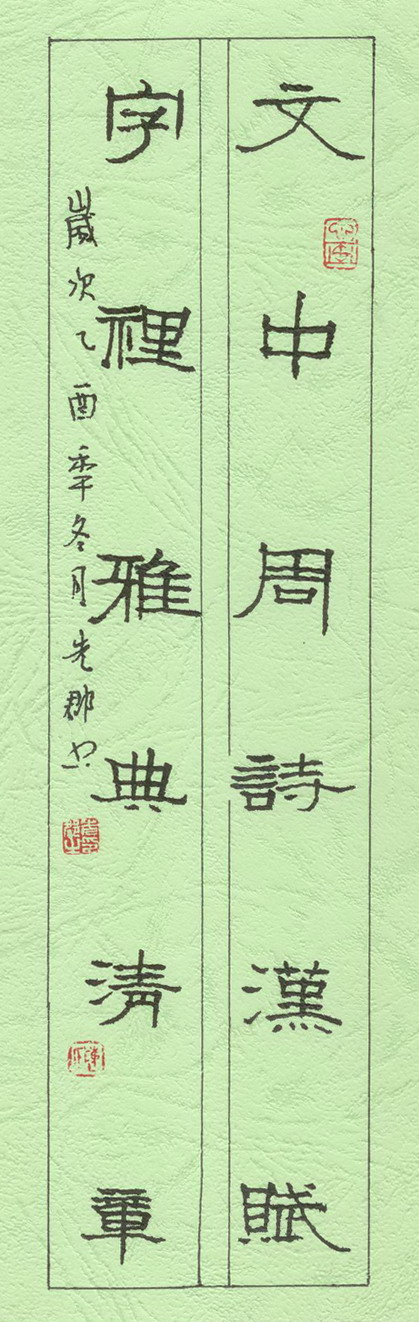 文中周詩漢賦
字裡雅典清章
歲次乙酉年冬月先郡書